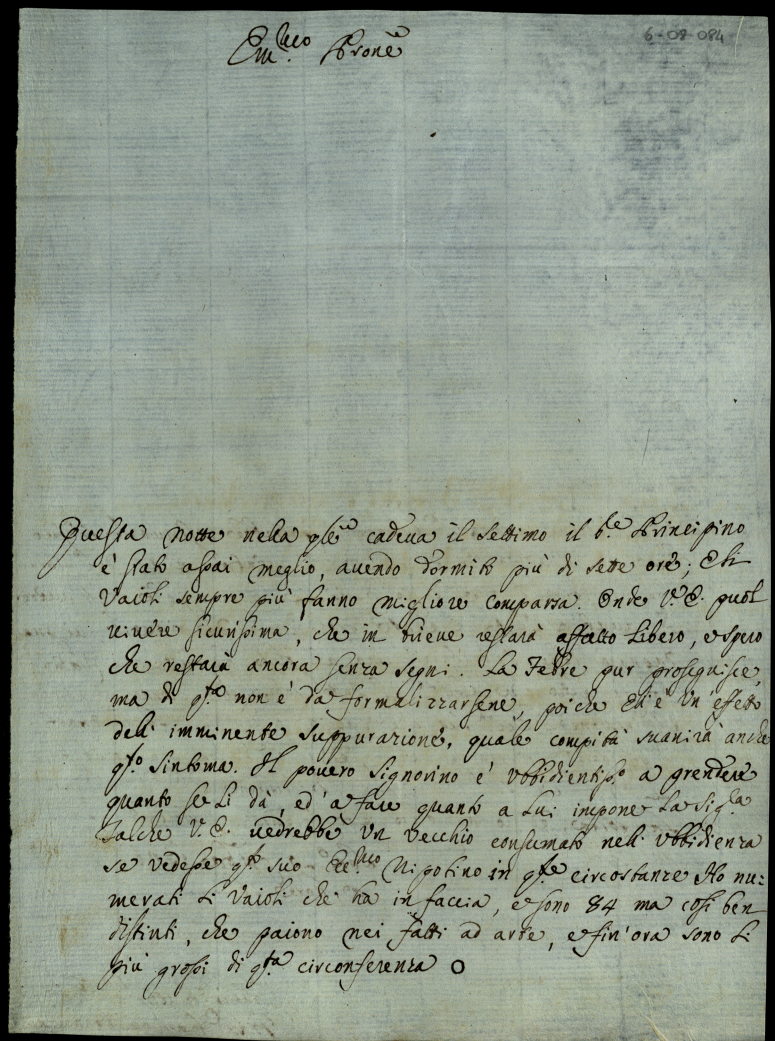 6-08-084
Em.mo Prone
Questa notte nella qle cadeva il settimo il Principino
è stato assai meglio, avendo dormito più di sette ore; E li
Vaioli sempre più fanno migliore comparsa. Onde V. E. puol
vivere sicurissima, che in breve restarà affatto libero, e spero
che restarà ancora senza segni. La Febre pur prosequisce,
ma di qta non è da formalizzarsene, poiche Ell'è Un effetto
dell'imminente suppurazione, quale compita svanirà anche
qto sintoma. Il povero Signorino è Ubbidientissº a prendere
quanto se li dà, ed' a fare quanto a Lui impone La Sig.ra
Talche V. E. vedrebbe Un vecchio consumato nell'ubbidienza
se vedesse qto suo Ecc.mo Nipotino in qte circostanze Ho nu:
merati li Vaioli che ha in faccia, e sono 84 ma così ben
distinti, che paiono nei fatti ad arte, e fin'ora sono li
più grossi di qta circonferenza O